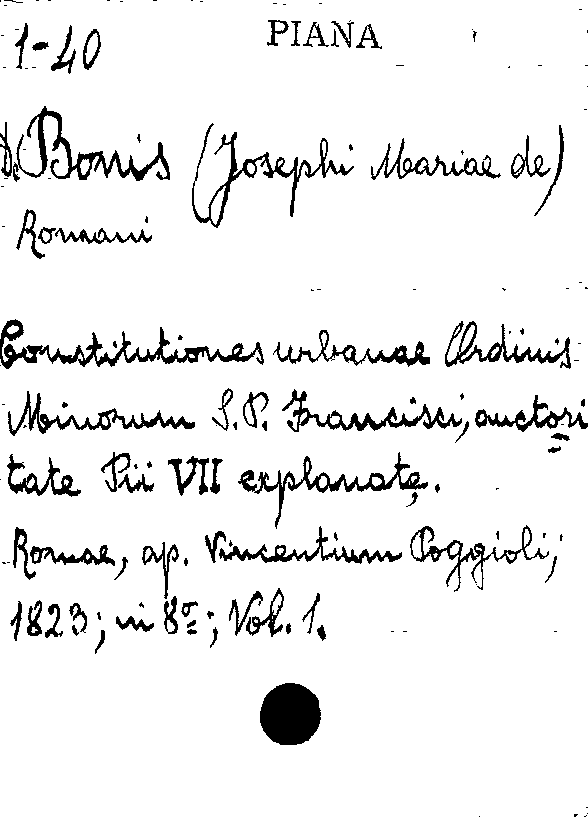 1-40 PIANA
De Bonis (Josephi Mariae de)
Romani
Constitutiones urbanae Ordinis
Minorum S. P. Francisci, auctori
tate Pii VII explanatę.
Romae, ap. Vincentium Poggioli,
1823; in 8º; Vol. 1.